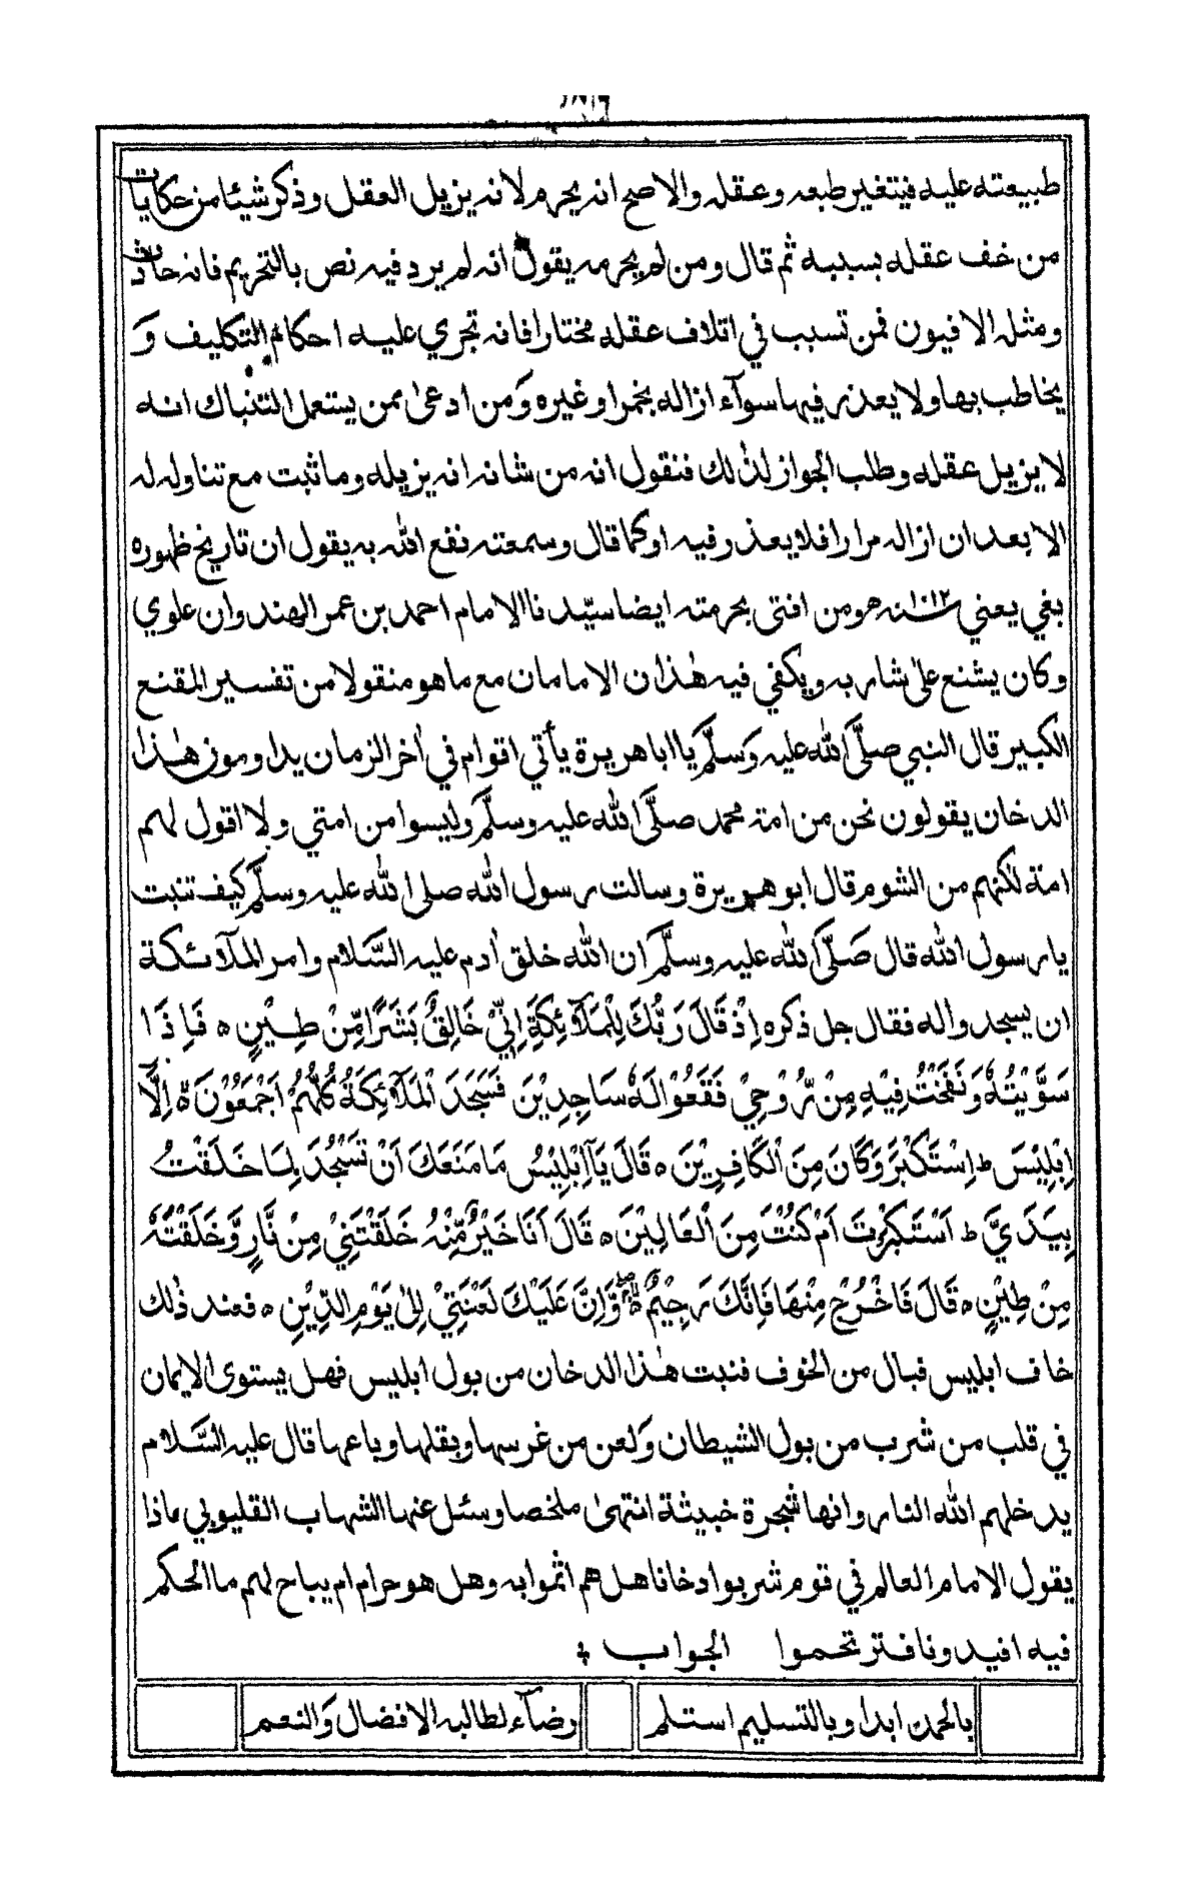 طبيعته عليه فيتغير طبعه وعقله والاصح انه يحرم لانه يزيل العقل وذكر شيئا من حكايات
من خف عقله بسببه ثم قال ومن لم يحرمه يقول انه لم يرد فيه نص بالتحريم فانه حادث
ومثله الافيون فمن تسبب في اتلاف عقله مختارا فانه تجري عليه احكام التكليف وَ
يخاطب بها ولا يعذر فيها سوآء ازاله بخمر او غيره وَمن ادعىٰ ممن يستعمل التنباك انه
لا يزيل عقله وطلب الجواز لذٰلك فنقول انه من شانه انه يزيله وما ثبت مع تناوله له
الا بعد ان ازاله مرارا فلا يعذر وفيه او كما قال وسمعته نفع الله به يقول ان تاريخ ظهوره
بغي يعني سنة ١٠١٢ هو ومن افتى بحرمته ايضا سيّدنا الامام احمد بن عمر الهندوان علوي
وكان يشنع علىٰ شاربه ويكفي فيه هٰذان الامامان مع ما هو منقولا من تفسير المقنع
الكبير قال النبي صلَّى الله عليه وَسلَّم يا ابا هريرة يأتي اقوام في اٰخر الزمان يداومون هٰذا
الدخان يقولون نحن من امة محمد صلَّى الله عليه وسلَّم وليسوا من امتي ولا اقول لهم
امة لٰكنهم من الشوم قال ابو هريرة وسالت رسول الله صلى الله عليه وسلَّم كيف تنبت
يا رسول الله قال صَلَّى الله عليه وسلَّم ان الله خلق اٰدم عليه السَّلام وامر الملآئكة
ان يسجدوا له فقال جل ذكره اِذْ قَالَ رَبُّكَ لِلْمَلَآئِكَةِ اِنِّيْ خَالِقٌ بَشَرًا مِّنْ طِيْنٍ ه فَاِذَا
سَوَّيْتُهٗ وَنَفَخْتُ فِيْهِ مِنْ رُّوْحِيْ فَقَعُوْا لَهٗ سَاجِدِيْنَ فَسَجَدَ الْمَلَآئِكَةُ كُلُّهُمْ اَجْمَعُوْنَ ه اِلَّا
اِبْلِيْسَ ط اِسْتَكْبَرَ وَكَانَ مِنَ الْكَافِرِيْنَ ه قَالَ يَآاِبْلِيْسُ مَا مَنَعَكَ اَنْ تَسْجُدَ لِمَا خَلَقْتُ
بِيَدَيَّ ط اَسْتَكْبَرْتَ اَمْ كُنْتَ مِنَ الْعَالِيْنَ ه قَالَ اَنَا خَيْرٌ مِّنْهُ خَلَقْتَنِيْ مِنْ نَّارٍ وَّخَلَقْتَهٗ
مِنْ طِيْنٍ ه قَالَ فَاخْرُجْ مِنْهَا فَاِنَّكَ رَجِيْمٌ ه وَّاِنَّ عَلَيْكَ لَعْنَتِيْ اِلىٰ يَوْمِ الدِّيْنِ ه فعند ذٰلك
خاف ابليس فبال من الخوف فنبت هٰذا الدخان من بول ابليس فهل يستوى الايمان
في قلب من شرب من بول الشيطان وَلعن من غرسها وبقلها وباعها قال عليه السَّلام
يدخلهم الله النار وانها شجرة خبيثة انتهىٰ ملخصا وسئل عنها الشهاب القليوبي بماذا
يقول الامام العالم في قوم شربوا دخانا هل هم اثموا به وهل هو حرام ام يباح لهم ما الحكم
فيه افيدونا فترحموا الجواب
بالحمد ابدا وبالتسليم استلم
رضآء لطالبه الافضال وَالنعم